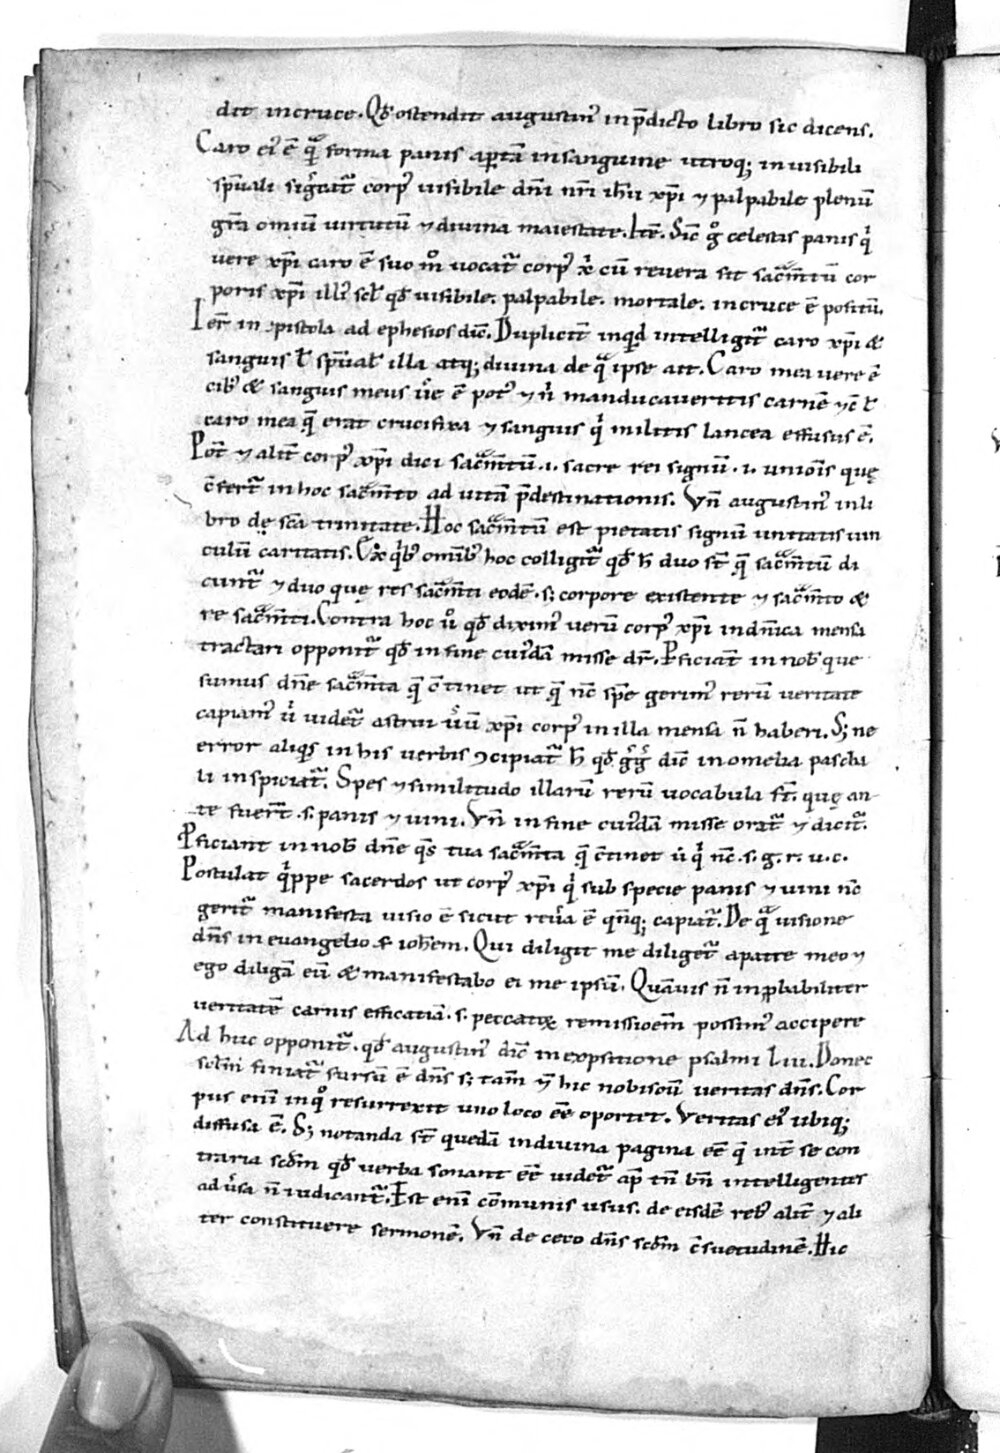 dit incruce. Qđ ostendit augustin᾽ inp̄dicto libro sic dicens.
Caro ei᾽ ē qͣ̄ forma panis ap̄tā insanguine utroq; inuisibili
sp̄uali sig̾catᷣ corp᾽ uisibile dn̄i nr̄i ih̄u xp̄i ⁊ palpabile plenū
gr̄a omiū uirtutū ⁊ diuina maiestate. Itē. Sic̄ g̊ celestis panis qͥ
uere xp̄i caro ē suo m̊ uocatᷣ corp᾽ x̄ cū reuera sit sac̄m̄tū cor
poris xp̄i illi᾽ scł qđ uisibile. palpabile. mortale. incruce ē positū.
Ier̄ in epistola ad ephesios dic̄. Dupliciť inqđ intelligitᷣ caro xp̄i &
sanguis ł sp̄ualꝰ illa atq; diuina de qͣ ipse ait. Caro mea uere ē
cib᾽ & sanguis meus u̾e ē pot᾽ ⁊ n̾ manducaueritis carnē ⁊c̄ ł
caro mea q̄ erat crucifixa ⁊ sanguis qͥ militis lancea effusus ē.
Pōt ⁊ aliť corp᾽ xp̄i dici sac̄m̄tū .i. sacre rei signū .i. unionis quę
c̄fertᷣ in hoc sac̄m̄to ad uitā p̄destinationis. Vn̄ augustin᾽ inli
bro dę sc̄a trinitate. Hoc sac̄m̄tū est pietatis signū unitatis uin
culū caritatis. Ex qͥb᾽ omīb᾽ hoc colligitᷣ qđ h̄ duo st̄ q̄ sac̄m̄tū di
cuntᷣ ⁊ duo quę res sac̄m̄ti eodē .s; corpore existente ⁊ sac̄m̄to &
re sac̄m̄ti. Contra hoc ů qđ dixim᾽ uerū corp᾽ xp̄i indn̄ica mensa
tractari opponitᷣ qđ infine cui᾽dā misse dr̄. Ꝑficiāt in nobꝰ que
sumus dn̄e sac̄m̄ta q̄ c̄tinet ut q̄ nc̄ sp̄e gerim᾽ rerū ueritate
capiam᾽ u̇ uidetᷣ astrui u̾ū xp̄i corp᾽ inilla mensa n̄ haberi. S; ne
error aliqͥs in his uerbis ꝯcipiatᷣ h̄ qđ gͥgͥ dic̄ inomelia pascha
li inspiciatᷣ. Spes ⁊ similitudo illarū rerū uocabula st̄. quę an-
te fuer̄t .s. panis ⁊ uini. Vn̄ in fine cui᾽dā misse oratᷣ ⁊ dicitᷣ.
Ꝑficiant in nobꝰ dn̄e q̄s tua sac̄m̄ta q̄ c̄tinet u̇ qͥ nc̄ .s. g. r. u. c.
Postulat qͥppe sacerdos ut corp᾽ xp̄i qͥ sub specie panis ⁊ uini nc̄
geritᷣ manifesta uisio ē sicut reu̾a ē qn̄q; capiatᷣ. De qͣ uisione
dn̄s in euangelio s̄ ioh̄em. Qui diligit me diligetᷣ apatre meo ⁊
ego diligā eū & manifestabo ei me ipsū. Quāuis n̄ inꝓbabiliter
ueritatē carnis efficatiā .s. peccatoꝝ remissioēm possim᾽ accipere
Ad huc opponitᷣ. qđ augustin᾽ dic̄ inexpositione psalmi Liii. Donec
sc̄lm finiatᷣ sursū ē dn̄s s; tam̄ ⁊ hic nobiscū ueritas dn̄s. Cor
pus enī inq̊ resurrexit uno loco eē oportet. Veritas ei᾽ ubiq;
diffusa ē. S; notanda st̄ quedā indiuina pagina eť q̄ inť se con
traria scđm qđ uerba sonant eē uidetᷣ ap᾽ tn̄ bn̄ intelligentes
adu̾sa n̄ iudicantᷣ. Est enī cōmunis usus. de eisdē reb᾽ aliť ⁊ ali
ter constituere sermonē. Vn̄ de ceco dn̄s scđm c̄suetudinē. Hic